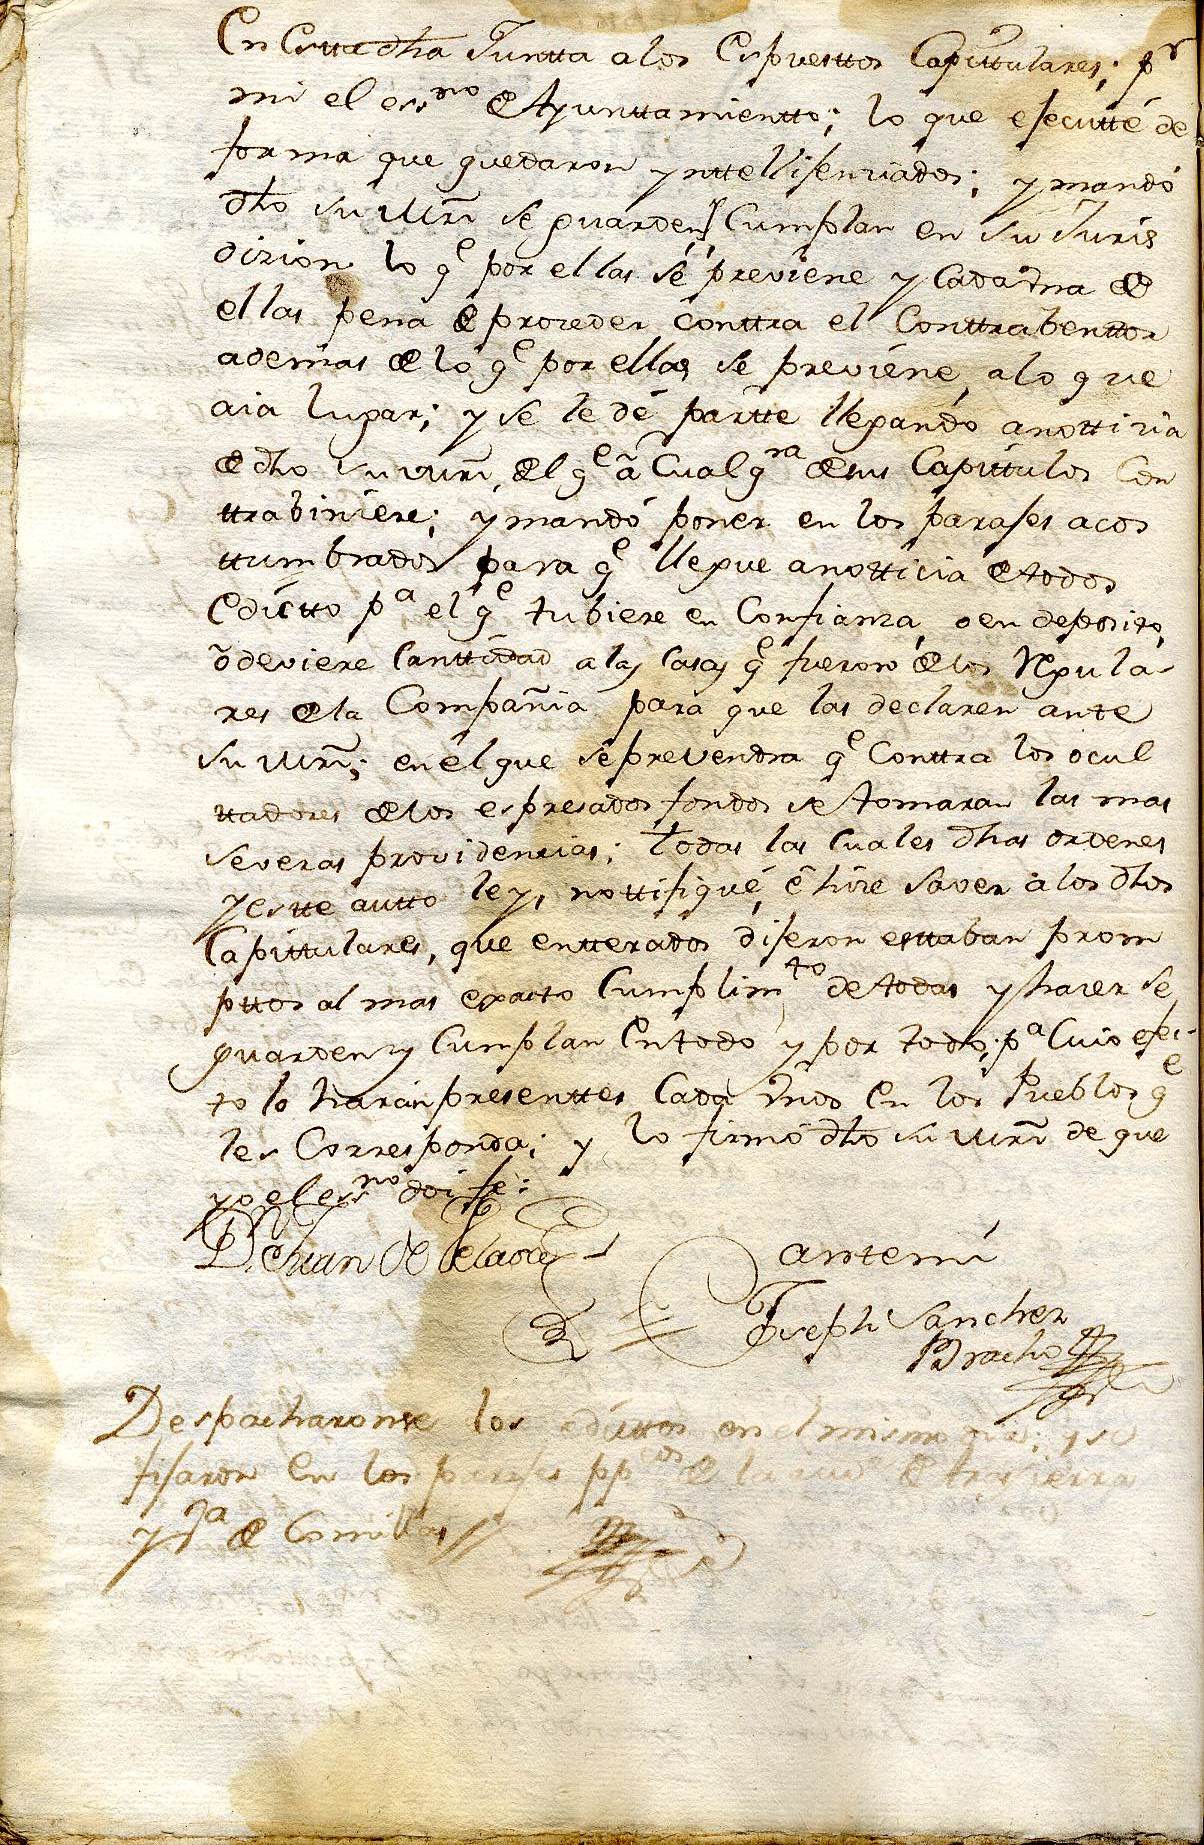 En Estta dha Juntta a los Espuesttos Capittulares; pr
mi el essno de Ayunttamientto; lo que ejecutté de
forma que quedaron ynttellijenziados; y mandó
dho su Mrd se guarden y Cumplan en su Juris
dizion lo qe por ellas se previene y Cada Vna de
ellas pena de prozeder conttra el Conttrabenttor
ademas de lo qe por ellas se previene, a lo que
aia lugar; y se le dé partte llegando a nottizia
de dho su Mrd, del qe â Cualqra de sus Capittulos Con
ttrabiniere; y mandó poner en los parajes acos
ttumbrados para qe llegue a notticia de todos
Edictto pa el qe tubiere en Confianza, o en deposito,
ô deviere Canttidad a las Casas qe fueron de los Regula
res de la Compañia para que las declaren ante
su Mrd; en el que se prevendra qe Conttra los ocul
ttadores de los espresados fondos se tomaran las mas
severas providenzias; todas las cuales dhas ordenes
y estte autto ley, nottifiqué, é hize saver a los dhos
Capittulares, que entterados dijeron esttaban prom
pttos al mas exacto Cumplimto de todas y hazer se
guarden y Cumplan En todo y por todo; pa Cuio efec
to lo harán presenttes Cada Vno En los Pueblos qe
les Corresponda; y lo firmó dho su Mrd de que
yo el essno doi fe:
Dn Juan de
ante mi
Joseph Sanchez
Bracho
Despacharonse los edicttos en el mismo dia; y se
fijaron En los parajes ppcos de la de trasierra
y Va de Comillas